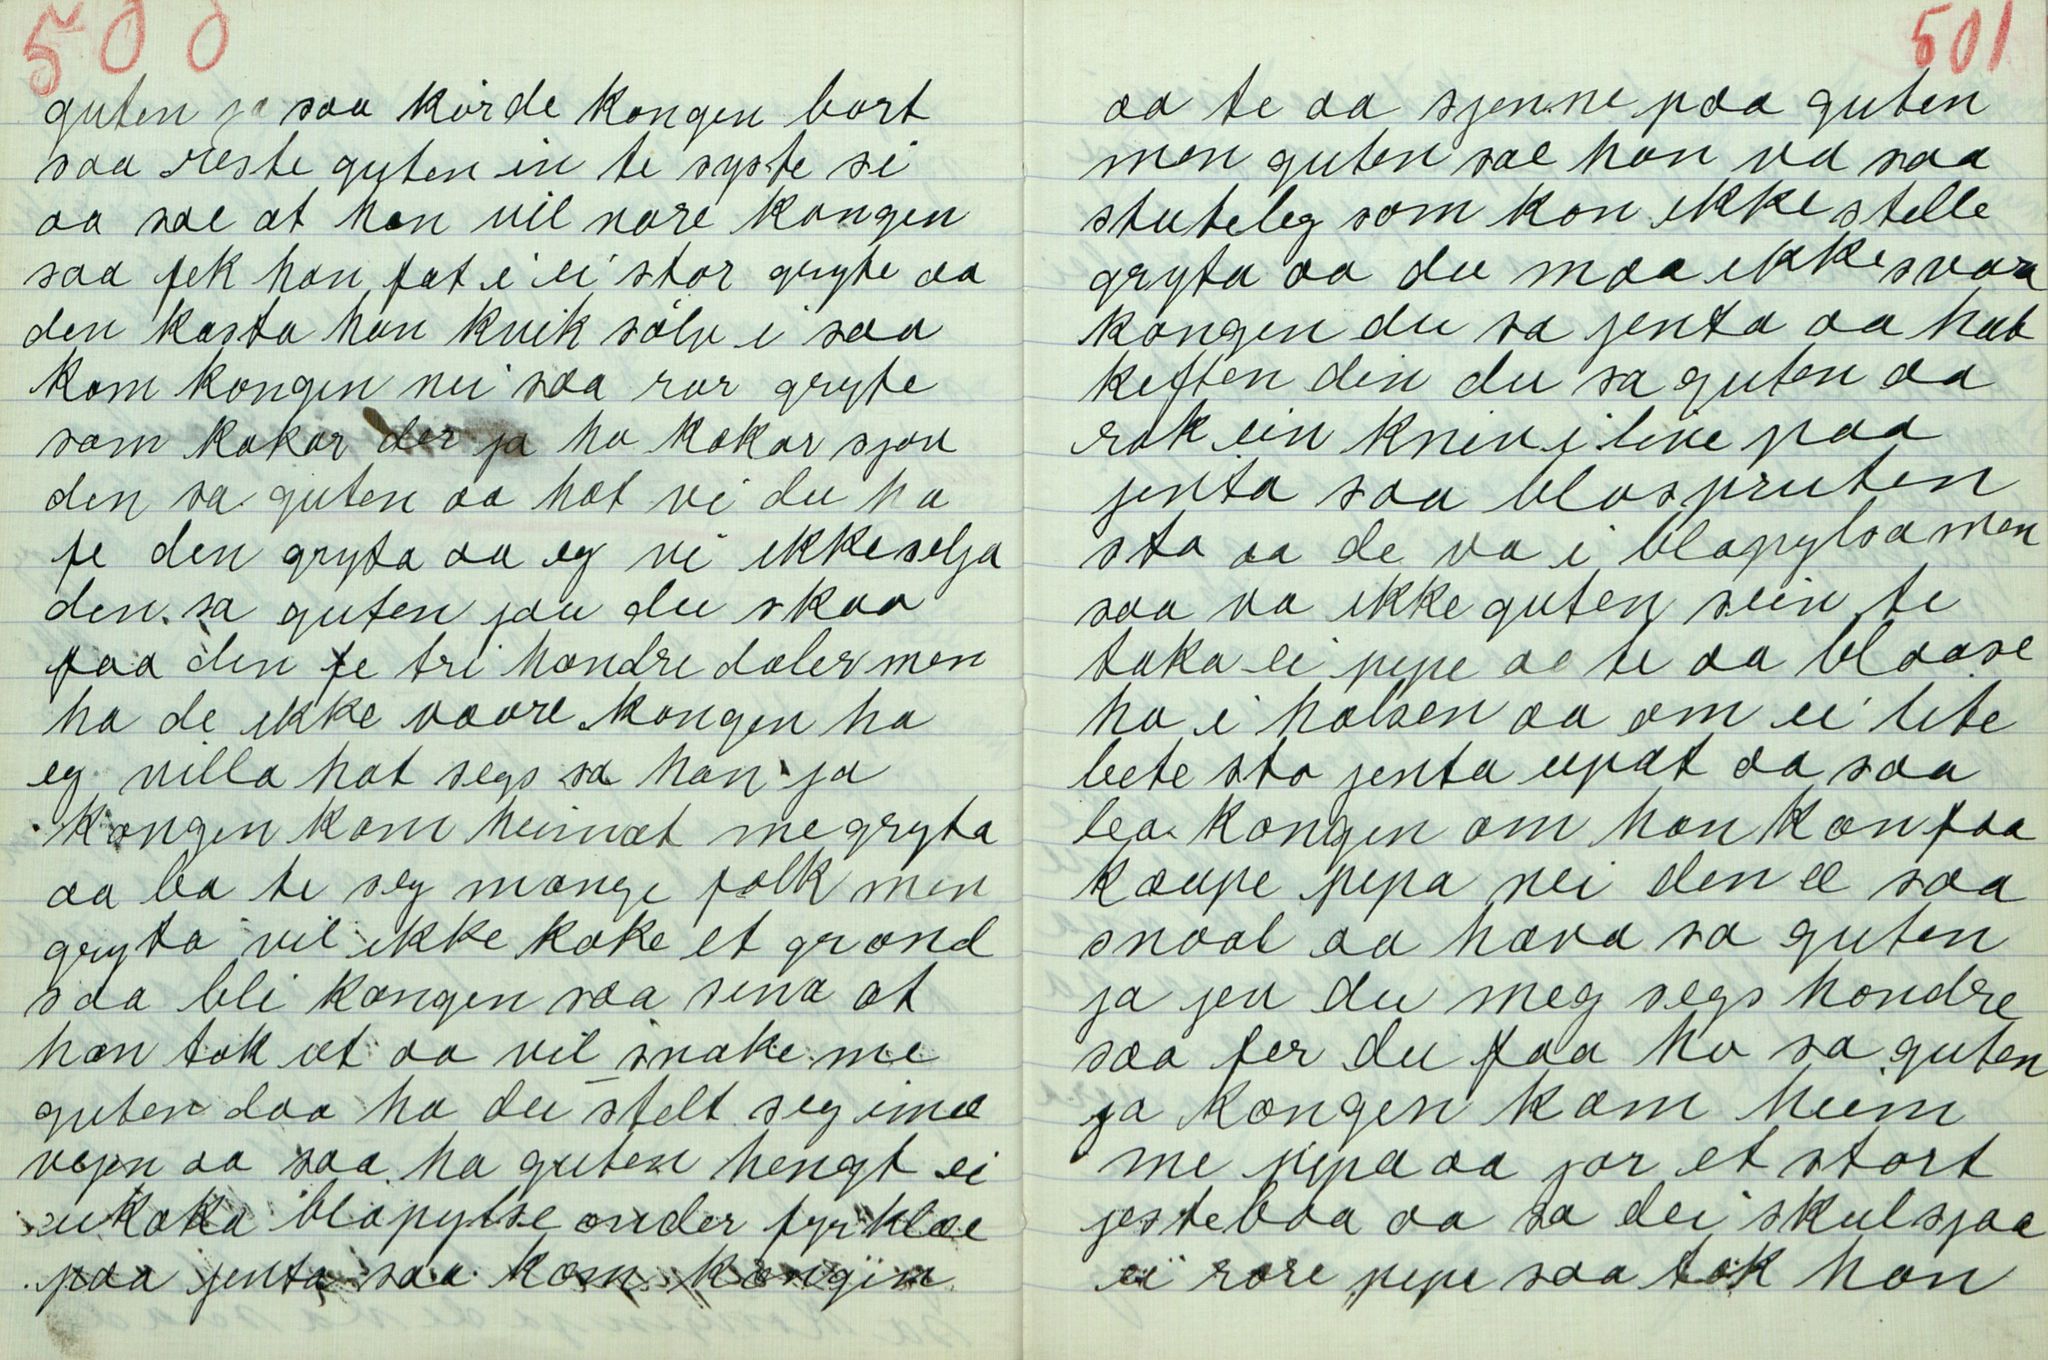 500
guten ja saa körde kongen bort
saa reste guten in te syste si
aa sae at han vil nare kongen
saa fek han fat i ei stor gryte aa
den kasta han kvik sölv i saa
kom kongen nei saa rar gryte
som kokar der ja ho kokar sjøu
den sa guten aa hat vi du ha
fe den gryta aa eg vi ikke selja
den sa guten jau du skaa
faa den fe tri hondre daler men
ha de ikke vaare kongen ha
eg villa hat segs sa han ja
kongen kom heimat me gryta
aa ba te seg mange folk men
gryta vil ikke koke et grand
saa bli kongen saa sina at
han tok ut aa vil snake me
guten daa ha du stelt seg ime
vejen aa saa ha guten hengt ei
ukoka blopylse onder fyrklæ
paa jenta saa kom kongin
501
aa te aa sjenne paa guten
men guten sae han va saa
stuteleg som kan ikke stelle
gryta aa du maa ikke svara
kongen du sa jenta aa hat
keften din du sa guten aa
rak ein kneiv i live paa
jenta saa blospruten
sto aa de va i blopylsa men
saa va ikke guten sein te
taka ei pipe ae te aa blaase
ho i halsen aa om ei lite
bete sto jenta upat aa saa
bea kongen om han kan faa
kaupe pipa nei den æ saa
snaal aa hava sa guten
ja jeu du meg segs hondre
saa fer du faa ho sa guten
ja kongen kom heim
me pipa aa jor et stort
jesteboa aa sa dei skulsjaa
ei rare pipe saa tok han